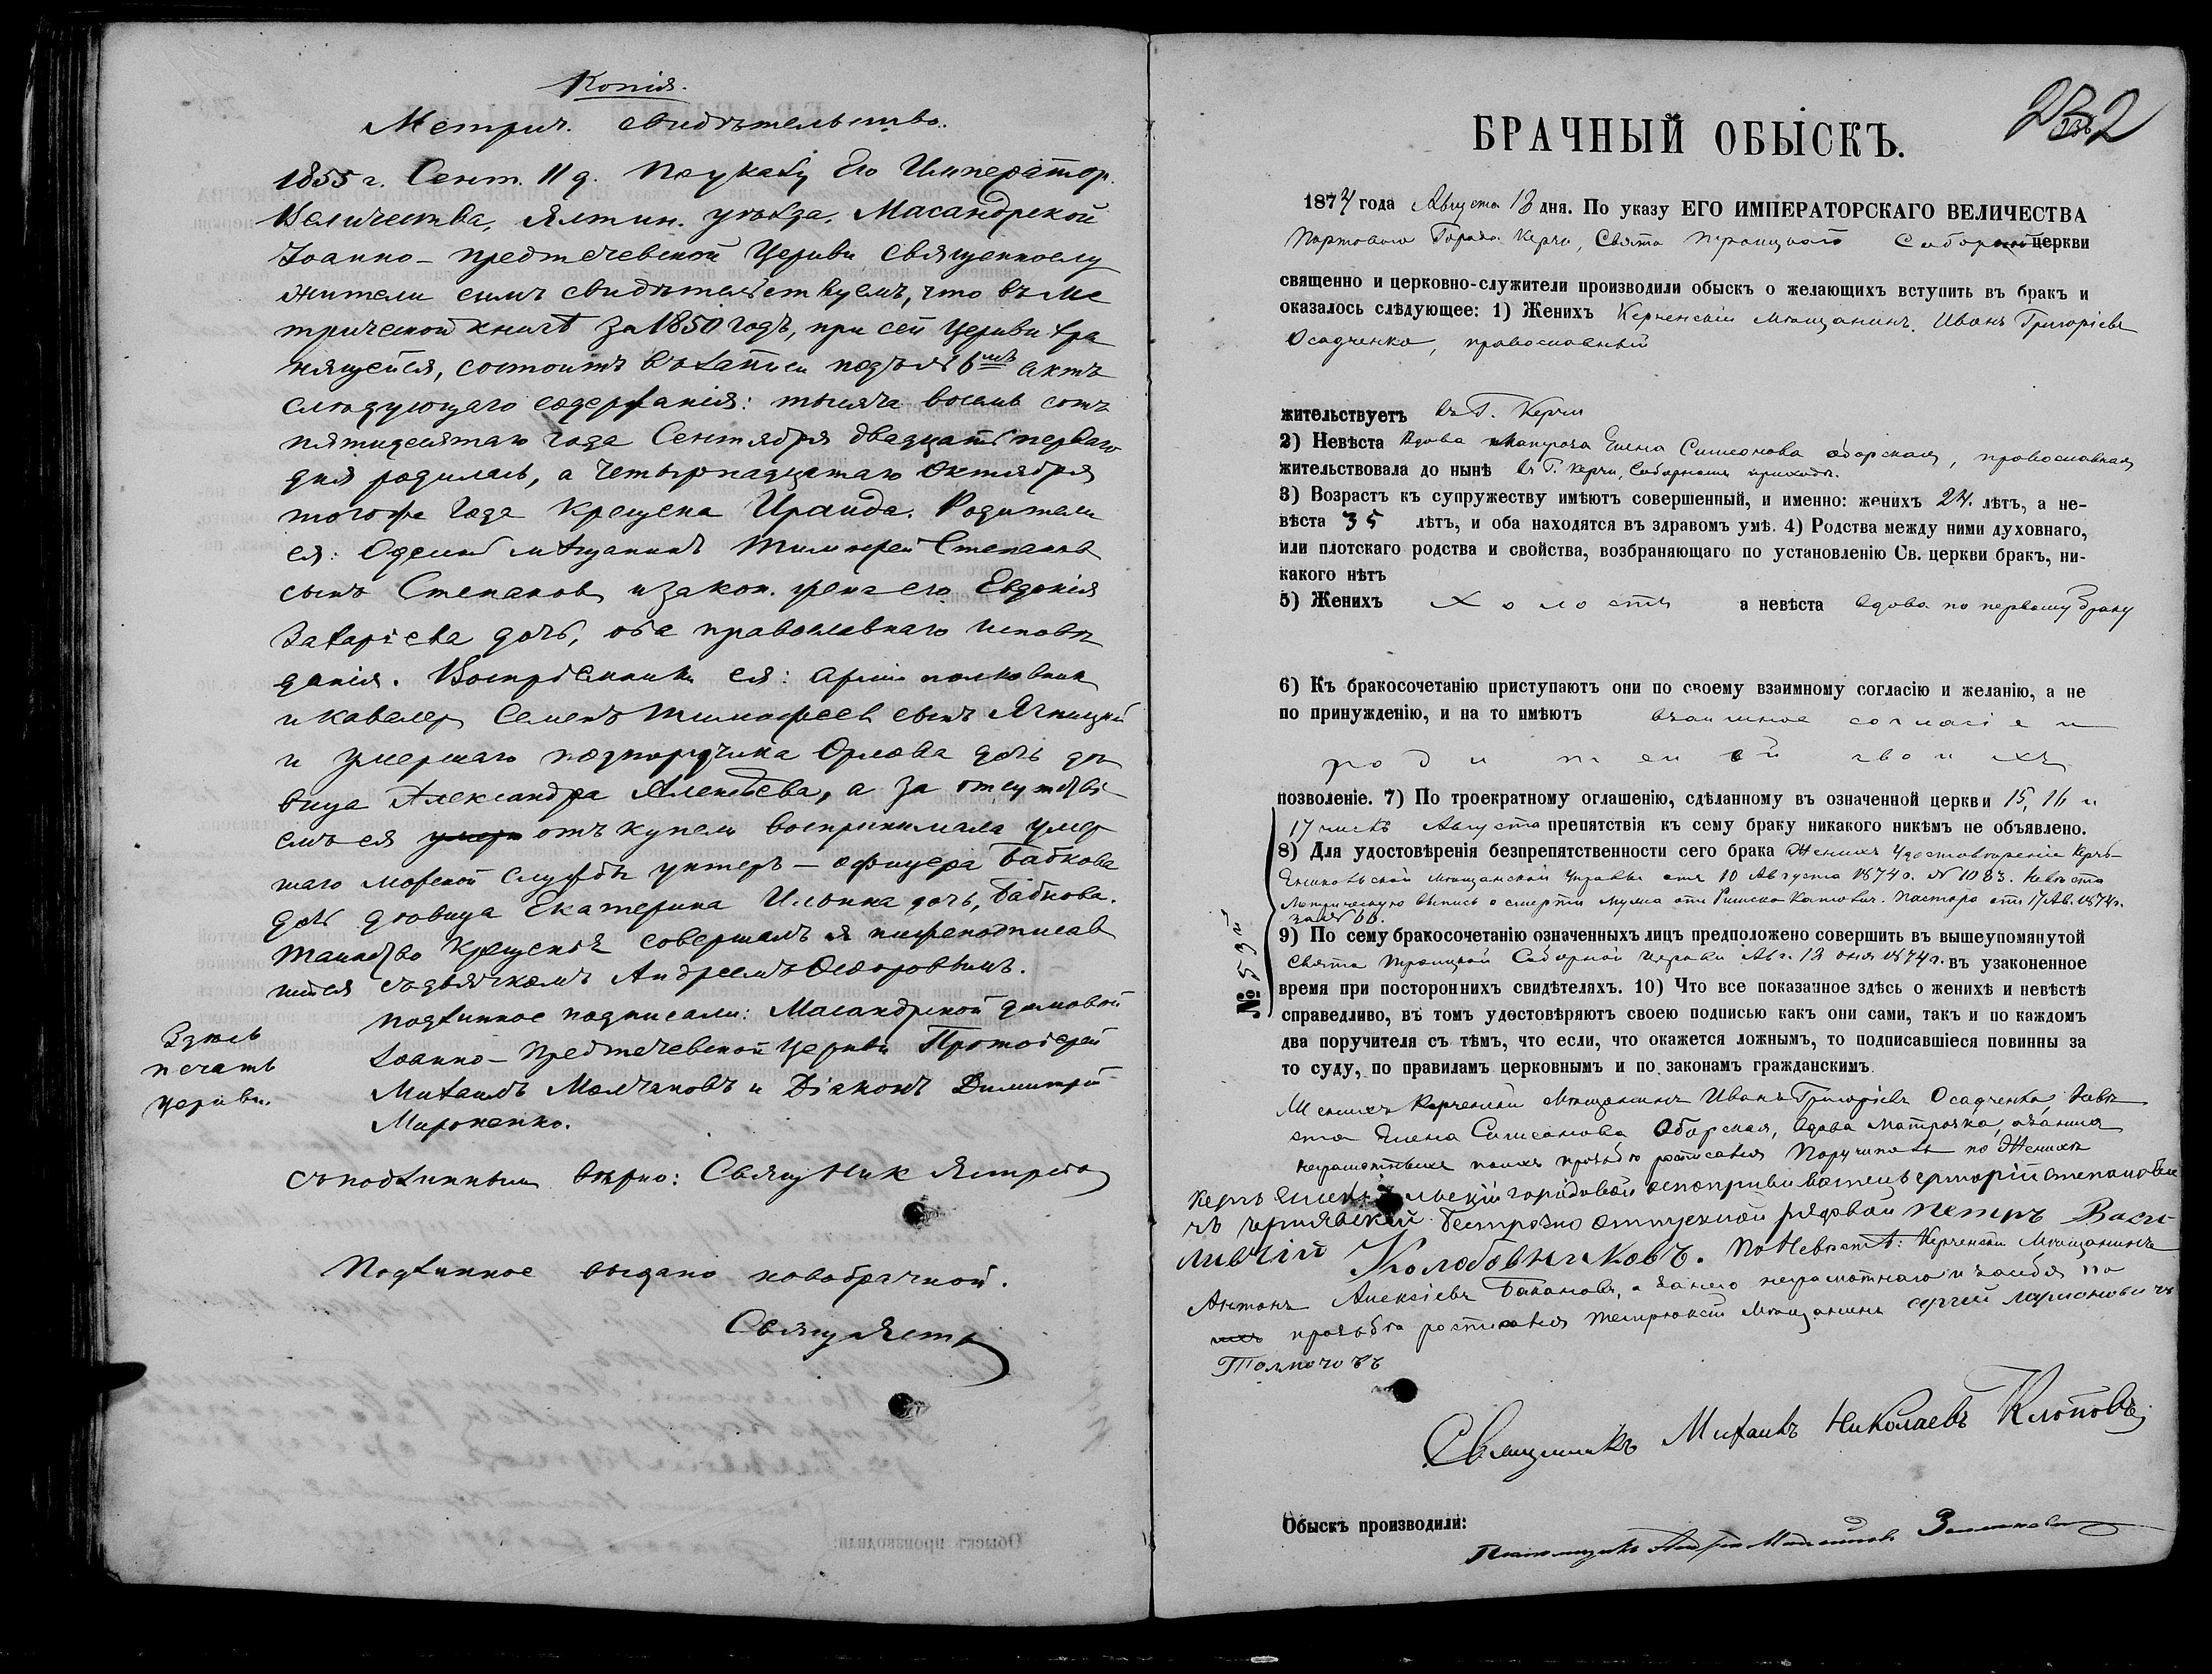 Копія.
Метрич. свидѣтельство.
1855 г. Сент. 11 д. По указу Его Император.
Величества, Ялтин. уѣзда, Масандрской
Іоанно-Предтечевской Церкви священнослу
жители симъ свидѣтельствуемъ, что въ ме
трической книгѣ за 1850 годъ, при сей церкви хра
нящейся, состоитъ въ записи подъ № 6мъ актъ
слѣдующаго содержанія: тысяча восемь сотъ
пятидесятаго года Сентября двадцать перваго
дня родилась, а четырнадцатаго Октября
того же года крещена Ираида. Родители
ея: Одескій мѣщанинъ Тимофей Степановъ
сынъ Степановъ и закон. жена его Евдокія
Захаріева дочь, оба православнаго исповѣ
данія. Воспріемники ея: арміи полковникъ
и кавалеръ Семенъ Тимофеевъ сынъ Ягницкій
и умершаго подпоручика Орлова дочь дѣ
вица Александра Алексѣева, а за отсутстві
емъ ея отъ купели воспринимала умер
шаго морской службы унтеръ-офицера Бабкова
дочь дѣвица Екатерина Ильина дочь, Бабкова.
Таинство крещенія совершалъ я нижеподписав
шійся съ дьячкомъ Андреемъ Ѳеодоровымъ.
Подлинное подписали: Масандрской домовой
Іоанно-Предтечевской церкви Протоіерей
Михаилъ Молчановъ и Діаконъ Димитрій
Мироненко.
Здѣсь
печать
церкви.
Съ подлиннымъ вѣрно: Священник Ястребов
Подлинное выдано новобрачной.
Свящ. Ястр
232
БРАЧНЫЙ ОБЫСКЪ.
1874 года Августа 18 дня. По указу ЕГО ИМПЕРАТОРСКАГО ВЕЛИЧЕСТВА
Портоваго Города Керчи, Свято Троицкаго Собора церкви
священно и церковно-служители производили обыскъ о желающихъ вступить въ бракъ и
оказалось слѣдующее: 1) Женихъ Керченскій мѣщанинъ Иванъ Григорьевъ
Осадченко, православный
жительствуетъ въ Г. Керчи
2) Невѣста Вдова матроса Елена Симеонова Оборская, православная
жительствовала до нынѣ въ Г. Керчи, Соборномъ приходѣ.
3) Возрастъ къ супружеству имѣютъ совершенный, и именно: женихъ 24. лѣтъ, а не-
вѣста 35 лѣтъ, и оба находятся въ здравомъ умѣ. 4) Родства между ними духовнаго,
или плотскаго родства и свойства, возбраняющаго по установленію Св. церкви бракъ, ни-
какого нѣтъ
5) Женихъ холостъ а невѣста вдова по первому браку
6) Къ бракосочетанію приступаютъ они по своему взаимному согласію и желанію, а не
по принужденію, и на то имѣютъ взаимное согласіе и
родителей своихъ
позволеніе. 7) По троекратному оглашенію, сдѣланному въ означенной церкви 15, 16 и
17 числъ Августа препятствія къ сему браку никакого никѣмъ не объявлено.
8) Для удостовѣренія безпрепятственности сего брака Женихъ удостовѣреніе Керчь-
Еникольской мѣщанской управы отъ 10 Августа 1874 г. № 1083. Невѣста
метрическую выпись о смерти мужа отъ Римско Католич. Пастора отъ 17 Ав. 1874 г.
за № 66.
№ 53й
9) По сему бракосочетанію означенныхъ лицъ предположено совершить въ вышеупомянутой
Свято Троицкой Соборной церкви Авг. 18 дня 1874 г. въ узаконенное
время при постороннихъ свидѣтеляхъ. 10) Что все показанное здѣсь о женихѣ и невѣстѣ
справедливо, въ томъ удостовѣряютъ своею подписью какъ они сами, такъ и по каждомъ
два поручителя съ тѣмъ, что если, что окажется ложнымъ, то подписавшіеся повинны за
то суду, по правиламъ церковнымъ и по законамъ гражданскимъ.
Женихъ Керченскій мѣщанинъ Иванъ Григорьевъ Осадченко, невѣ
ста Елена Симеонова Оборская, вдова матроска, а за нихъ
неграмотныхъ по ихъ прозьбѣ росписался Поручители по Женихѣ
Керчь городовой
Петръ Васи
Колобовниковъ. По Невѣстѣ: Керченскій мѣщанинъ
Антонъ Алексіевъ Бакановъ, а за него неграмотнаго и за себя по
прозьбѣ росписался Темрюкскій мѣщанинъ Сергей Ларионовичъ
Толмочовъ
Священникъ Михаилъ Николаевъ Клоповъ
Обыскъ производили: